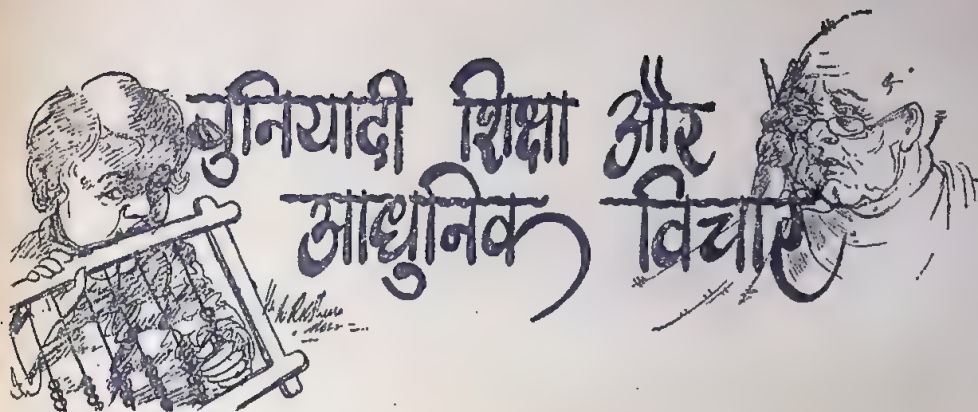 बुनियादी शिक्षा और
आधुनिक विचार